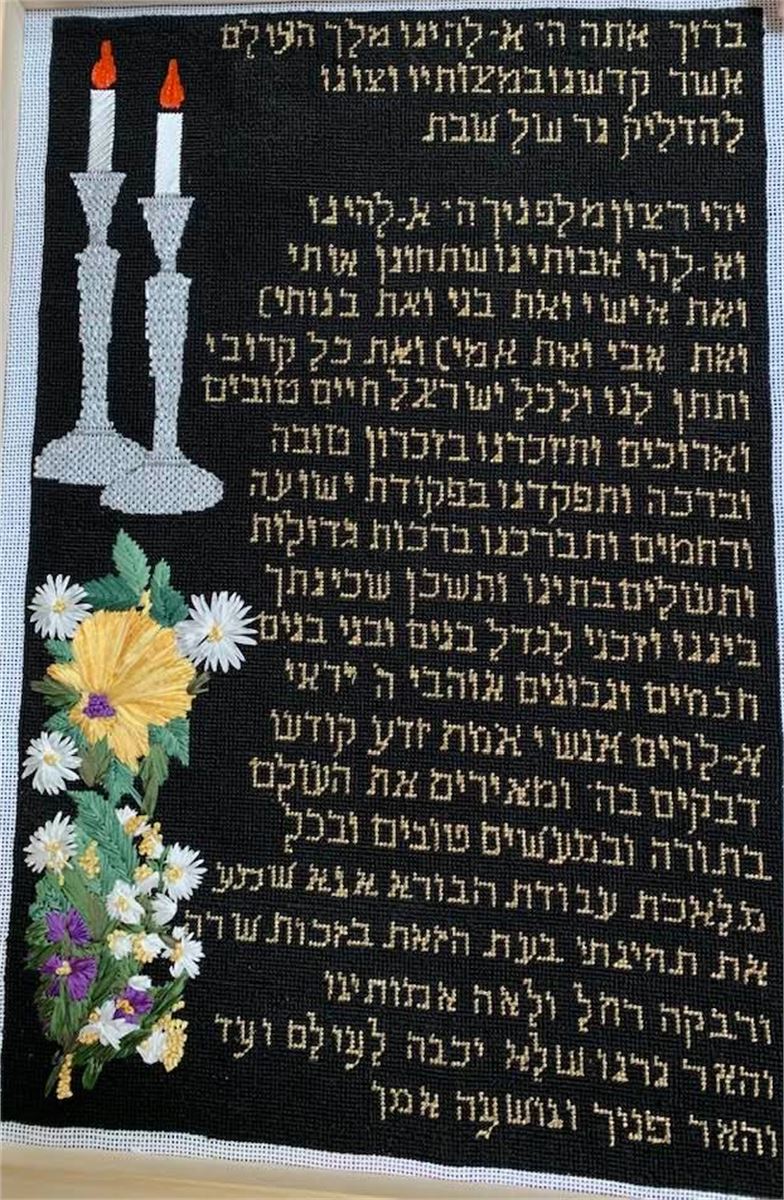 ברוך אתה ה' א-להינו מלך העולם
אשר קדשנו במצותיו וצונו
להדליק נר של שבת
יהי רצון מלפניך ה' א-להינו
וא-להי אבותינו שתחונן אותי
ואת אישי ואת בני ואת בנותי)
ואת אבי ואת אמי) ואת כל קרובי
ותתן לנו ולכל ישראל חיים טובים
וארוכים ותזכרנו בזכרון טובה
וברכה ותפקדנו בפקודת ישועה
ורחמים ותברכנו ברכות גדולות
ותשלים בתינו ותשכן שכינתך
ביננו וזכני לגדל בנים ובני בנים
חכמים ונבונים אוהבי ה' יראי
א-להים אנשי אמת זרע קודש
דבקים בה' ומאירים את העולם
בתורה ובמעשים טובים ובכל
מלאכת עבודת הבורא אנא שמע
את תחינתי בעת הזאת בזכות שרה
ורבקה רחל ולאה אמותינו
והאר נרנו שלא יכבה לעולם ועד
והאר פניך ונושעה אמן